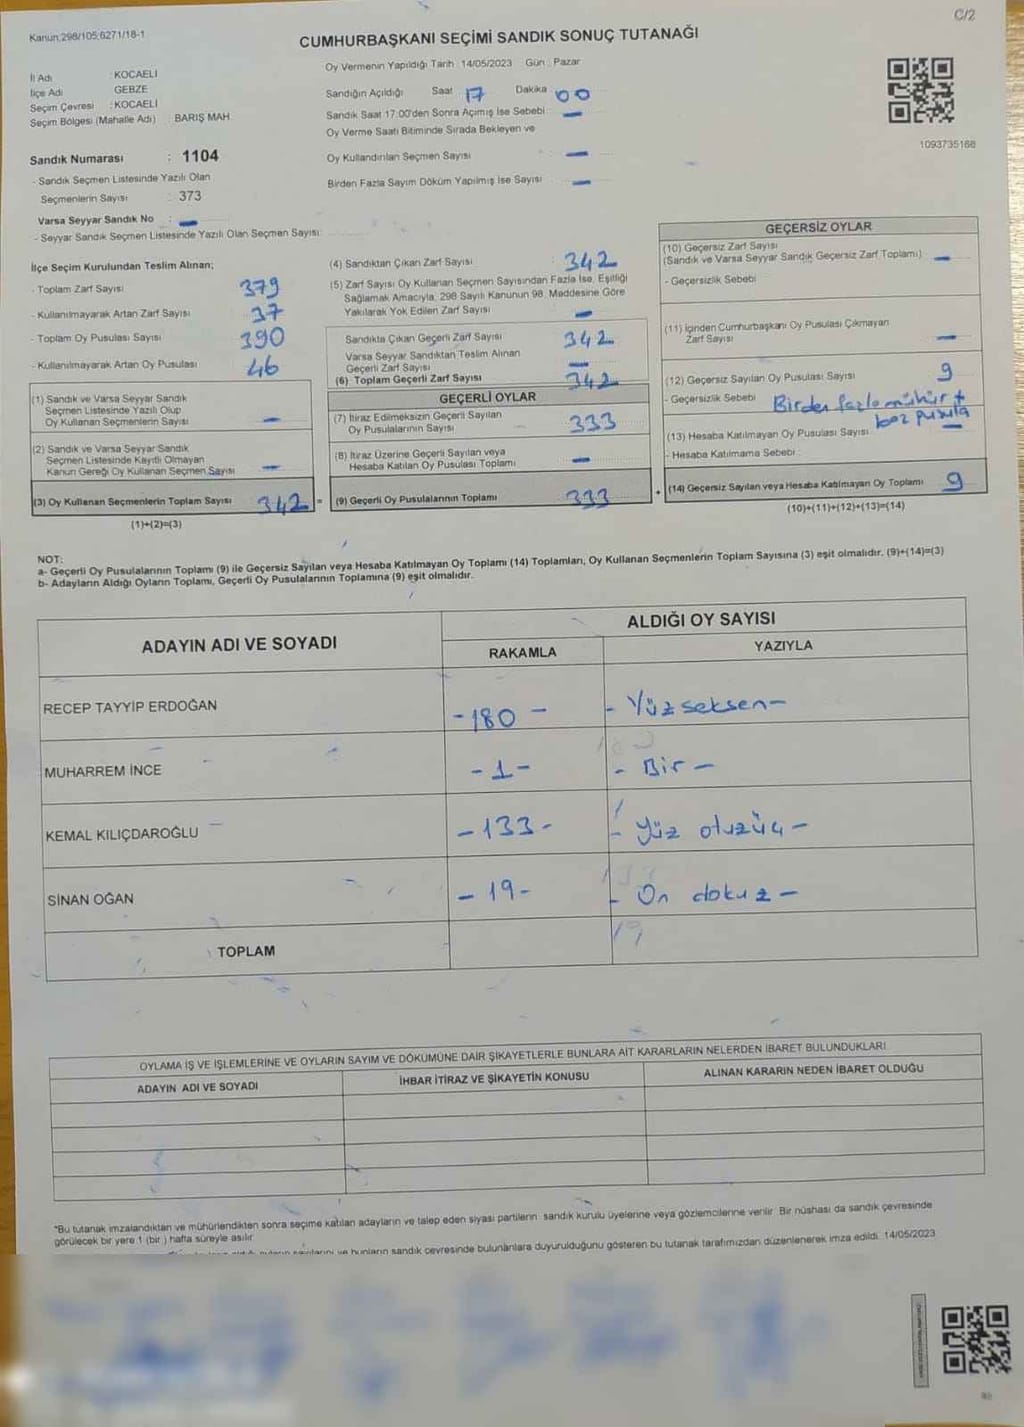 C/2
Kanun:298/105;6271/18-1
CUMHURBAŞKANI SEÇİMİ SANDIK SONUÇ TUTANAĞI
İl Adı : KOCAELİ
İlçe Adı GEBZE
Seçim Çevresi : KOCAELİ
Seçim Bölgesi (Mahalle Adı) : BARIŞ MAH.
Oy Vermenin Yapıldığı Tarih : 14/05/2023 Gün : Pazar
Sandığın Açıldığı Saat 17 Dakika 00
Sandık Saat 17:00'den Sonra Açımış İse Sebebi : —
Oy Verme Saati Bitiminde Sırada Bekleyen ve
Oy Kullandırılan Seçmen Sayısı —
Birden Fazla Sayım Döküm Yapılmış İse Sayısı —
1093735168
Sandık Numarası : 1104
- Sandık Seçmen Listesinde Yazılı Olan
Seçmenlerin Sayısı : 373
Varsa Seyyar Sandık No : —
- Seyyar Sandık Seçmen Listesinde Yazılı Olan Seçmen Sayısı:
İlçe Seçim Kurulundan Teslim Alınan;
- Toplam Zarf Sayısı 379
- Kullanılmayarak Artan Zarf Sayısı 37
- Toplam Oy Pusulası Sayısı 390
- Kullanılmayarak Artan Oy Pusulası 46
(1) Sandık ve Varsa Seyyar Sandık
Seçmen Listesinde Yazılı Olup
Oy Kullanan Seçmenlerin Sayısı —
(2) Sandık ve Varsa Seyyar Sandık
Seçmen Listesinde Kayıtlı Olmayan
Kanun Gereği Oy Kullanan Seçmen Sayısı —
(3) Oy Kullanan Seçmenlerin Toplam Sayısı 342 =
(1)+(2)=(3)
(4) Sandıktan Çıkan Zarf Sayısı 342
(5) Zarf Sayısı Oy Kullanan Seçmen Sayısından Fazla İse, Eşitliği
Sağlamak Amacıyla, 298 Sayılı Kanunun 98. Maddesine Göre
Yakılarak Yok Edilen Zarf Sayısı —
Sandıkta Çıkan Geçerli Zarf Sayısı 342
Varsa Seyyar Sandıktan Teslim Alınan
Geçerli Zarf Sayısı —
(6) Toplam Geçerli Zarf Sayısı 342
GEÇERLİ OYLAR
(7) İtiraz Edilmeksizin Geçerli Sayılan
Oy Pusulalarının Sayısı 333
(8) İtiraz Üzerine Geçerli Sayılan veya
Hesaba Katılan Oy Pusulası Toplamı —
(9) Geçerli Oy Pusulalarının Toplamı 333 +
GEÇERSİZ OYLAR
(10) Geçersiz Zarf Sayısı
(Sandık ve Varsa Seyyar Sandık Geçersiz Zarf Toplamı) —
- Geçersizlik Sebebi
(11) İçinden Cumhurbaşkanı Oy Pusulası Çıkmayan
Zarf Sayısı —
(12) Geçersiz Sayılan Oy Pusulası Sayısı 9
- Geçersizlik Sebebi Birden fazla mühür +
boz pusula
(13) Hesaba Katılmayan Oy Pusulası Sayısı —
- Hesaba Katılmama Sebebi :
(14) Geçersiz Sayılan veya Hesaba Katılmayan Oy Toplamı 9
(10)+(11)+(12)+(13)=(14)
NOT:
a- Geçerli Oy Pusulalarının Toplamı (9) ile Geçersiz Sayılan veya Hesaba Katılmayan Oy Toplamı (14) Toplamları, Oy Kullanan Seçmenlerin Toplam Sayısına (3) eşit olmalıdır. (9)+(14)=(3)
b- Adayların Aldığı Oyların Toplamı, Geçerli Oy Pusulalarının Toplamına (9) eşit olmalıdır.
ADAYIN ADI VE SOYADI
ALDIĞI OY SAYISI
RAKAMLA YAZIYLA
RECEP TAYYİP ERDOĞAN -180- - Yüzseksen-
MUHARREM İNCE -1- - Bir -
KEMAL KILIÇDAROĞLU -133- - Yüz otuzüç -
SİNAN OĞAN -19- - On dokuz -
TOPLAM
19
OYLAMA İŞ VE İŞLEMLERİNE VE OYLARIN SAYIM VE DÖKÜMÜNE DAİR ŞİKAYETLERLE BUNLARA AİT KARARLARIN NELERDEN İBARET BULUNDUKLARI
ADAYIN ADI VE SOYADI İHBAR İTİRAZ VE ŞİKAYETİN KONUSU ALINAN KARARIN NEDEN İBARET OLDUĞU
*Bu tutanak imzalandıktan ve mühürlendikten sonra seçime katılan adayların ve talep eden siyasi partilerin sandık kurulu üyelerine veya gözlemcilerine verilir. Bir nüshası da sandık çevresinde
görülecek bir yere 1 (bir ) hafta süreyle asılır.
ve bunların sandık çevresinde bulunanlara duyurulduğunu gösteren bu tutanak tarafımızdan düzenlenerek imza edildi. 14/05/2023